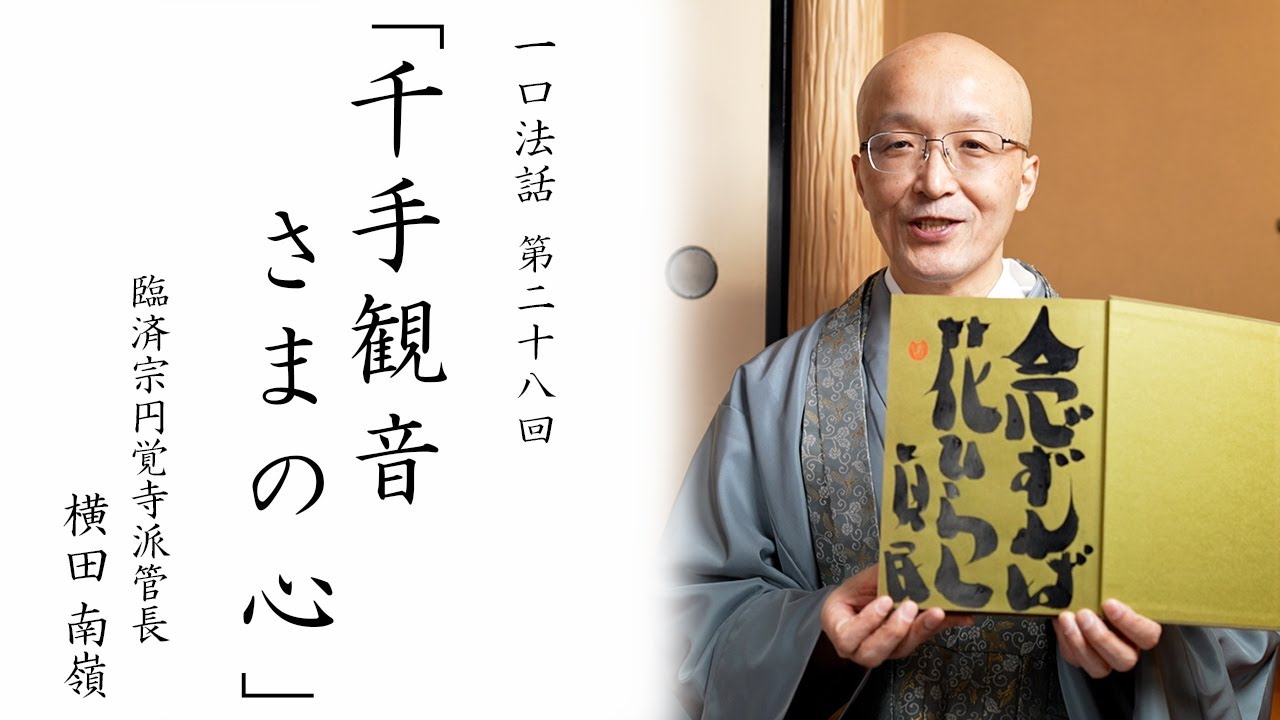 一口法話 第二十八回
「千手観音
さまの心」
臨済宗円覚寺派管長
横田 南嶺
念ずれば
花ひらく
真民